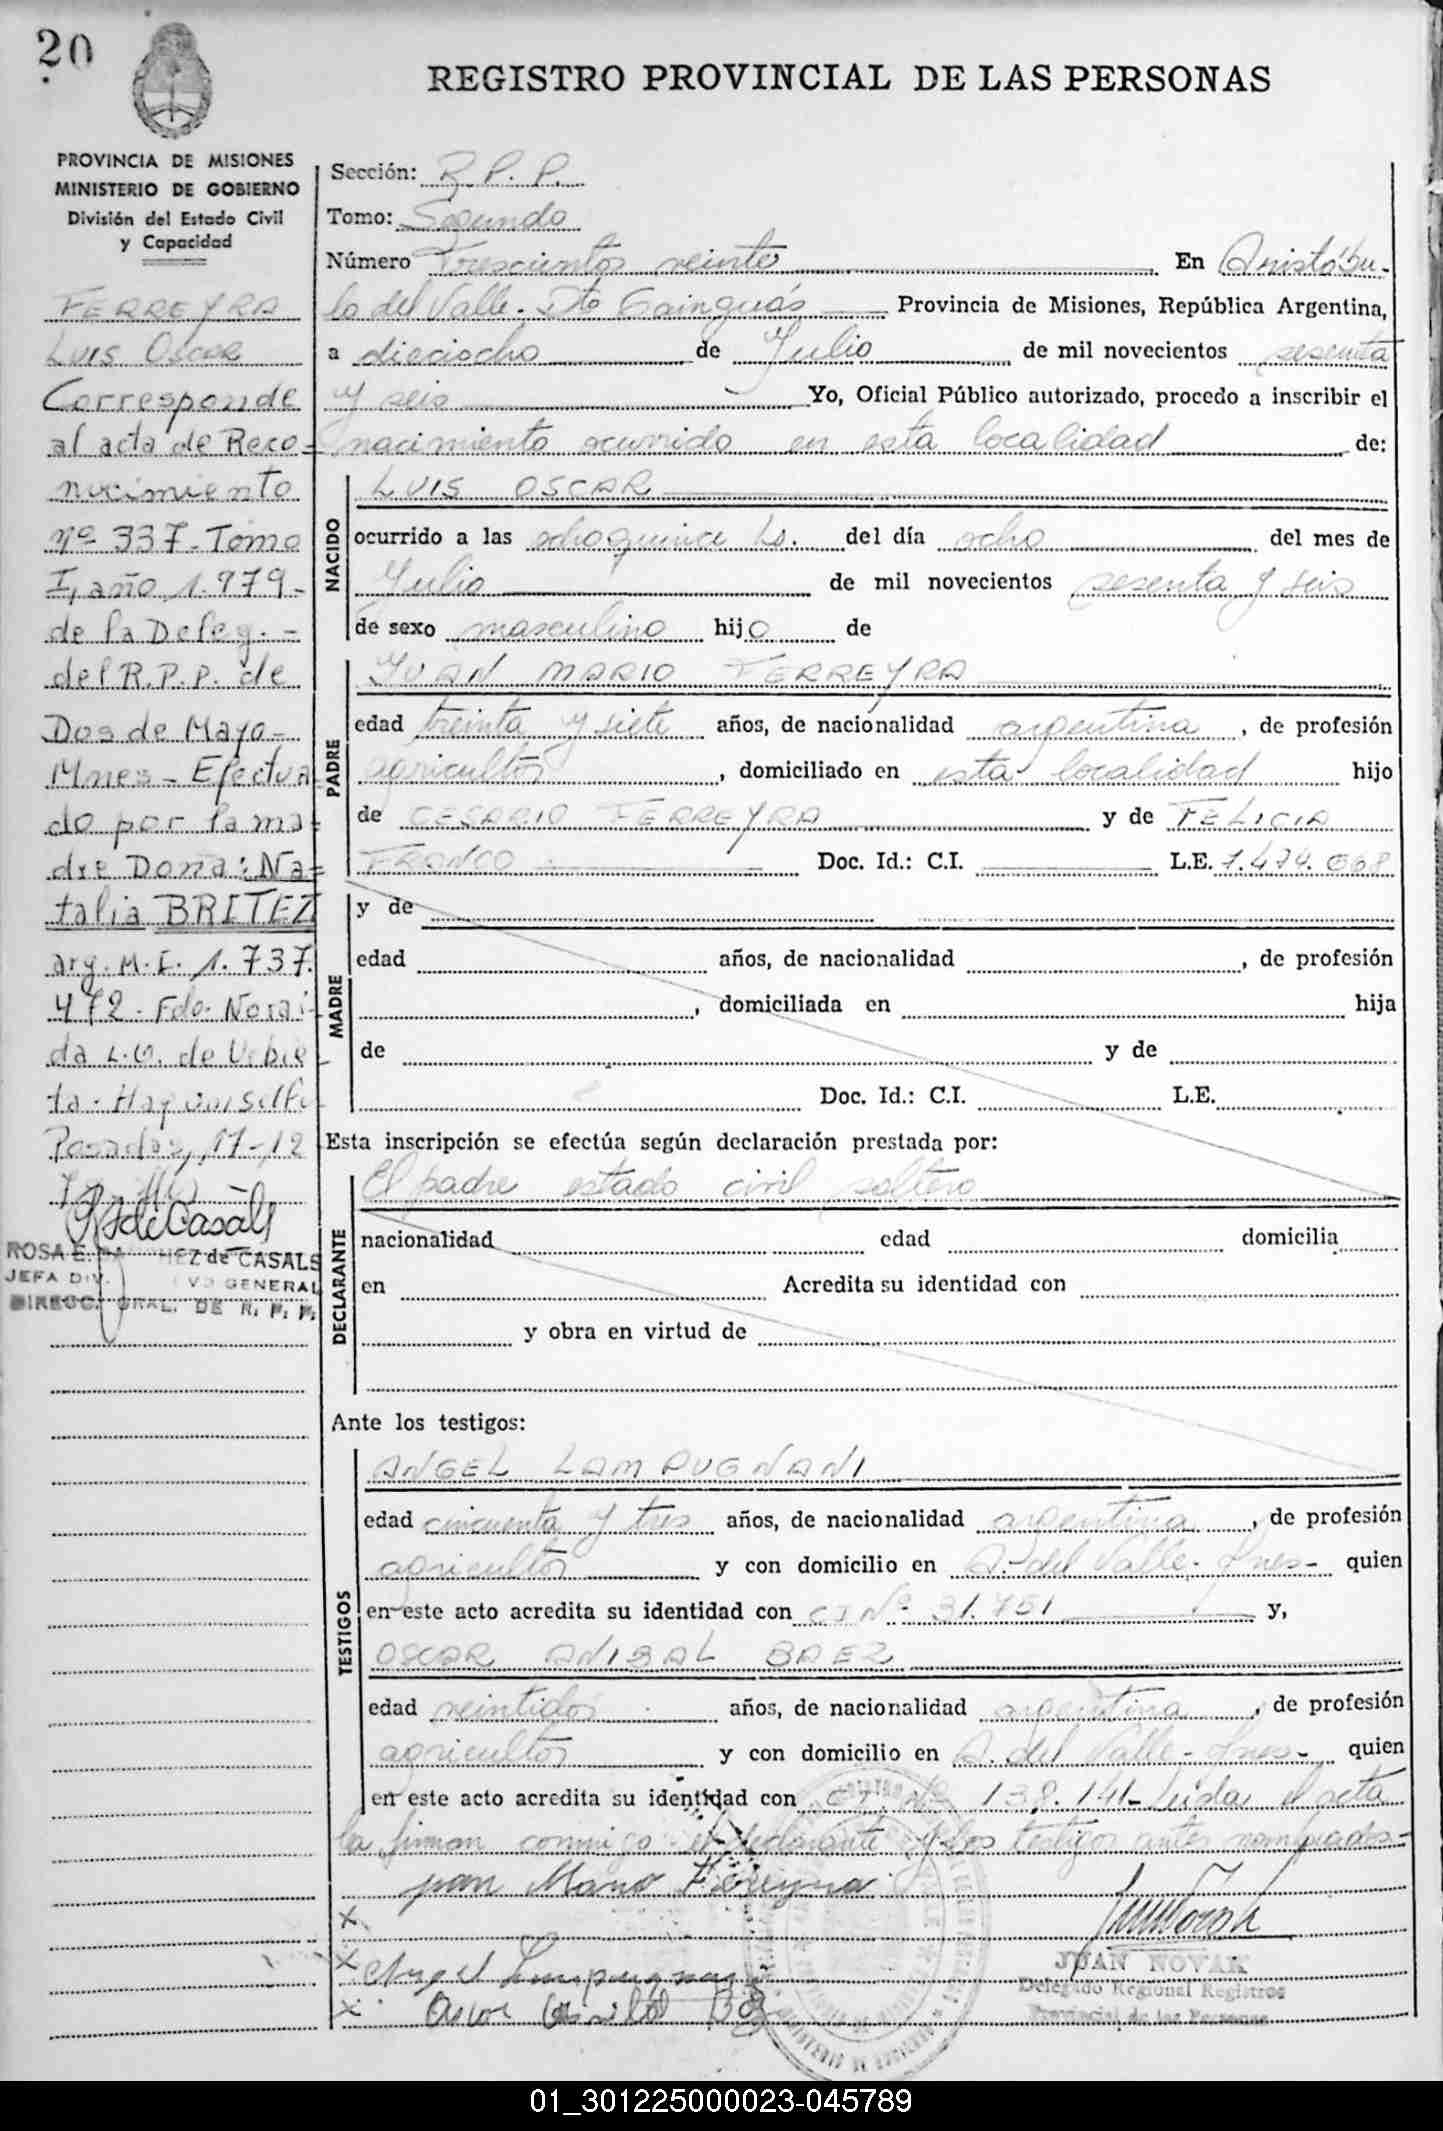 20
REGISTRO PROVINCIAL DE LAS PERSONAS
PROVINCIA DE MISIONES
MINISTERIO DE GOBIERNO
División del Estado Civil
y Capacidad
FERREYRA
LUIS OSCAR
Corresponde
al acta de Reco-
nocimiento
nº 337-Tomo
I, año 1.979-
de la Deleg.-
del R.P.P. de
Dos de Mayo-
Mnes- Efectua
do por la ma-
dre Doña: Na-
talia BRITEZ
arg. M.I. 1.737.
472- Fdo. Norai-
da L.G. de
Posadas, 17-12
ROSA E. HEZ de CASALS
JEFA DIV. GENERAL
DIRECC. GRAL. DE R. P. P.
Sección: R.P.P.
Tomo: Segundo
Número Trescientos veinte En Aristóbu-
lo del Valle- Dto Cainguás Provincia de Misiones, República Argentina,
a dieciocho de Julio de mil novecientos sesenta
y seis Yo, Oficial Público autorizado, procedo a inscribir el
nacimiento ocurrido en esta localidad de:
NACIDO
LUIS OSCAR
ocurrido a las ocho quince hs. del día ocho del mes de
Julio de mil novecientos sesenta y seis
de sexo masculino hijo de
PADRE
JUAN MARIO FERREYRA
edad treinta y siete años, de nacionalidad argentina, de profesión
agricultor, domiciliado en esta localidad hijo
de CESARIO FERREYRA y de FELICIA
FRANCO Doc. Id.: C.I. L.E. 7.474.068
MADRE
y de
edad años, de nacionalidad , de profesión
, domiciliada en hija
de y de
Doc. Id.: C.I. L.E.
Esta inscripción se efectúa según declaración prestada por:
DECLARANTE
El padre estado civil soltero
nacionalidad edad domicilia
en Acredita su identidad con
y obra en virtud de
Ante los testigos:
TESTIGOS
ANGEL LAMPUGNANI
edad cincuenta y tres años, de nacionalidad argentina, de profesión
agricultor y con domicilio en A. del Valle- Mnes- quien
en este acto acredita su identidad con CI Nº 31.751 y,
OSCAR ANIBAL BAEZ
edad veintidos años, de nacionalidad argentina, de profesión
agricultor y con domicilio en A. del Valle- Mnes- quien
en este acto acredita su identidad con CI. Nº 138.141- Leída el acta
la firman conmigo el declarante y los testigos antes nombrados-
Juan Mario Ferreyra
X
X Angel Lampugnani
X Oscar Anibal Baez
JUAN NOVAK
Delegado Regional Registros
Provincial de las Personas
01_301225000023-045789